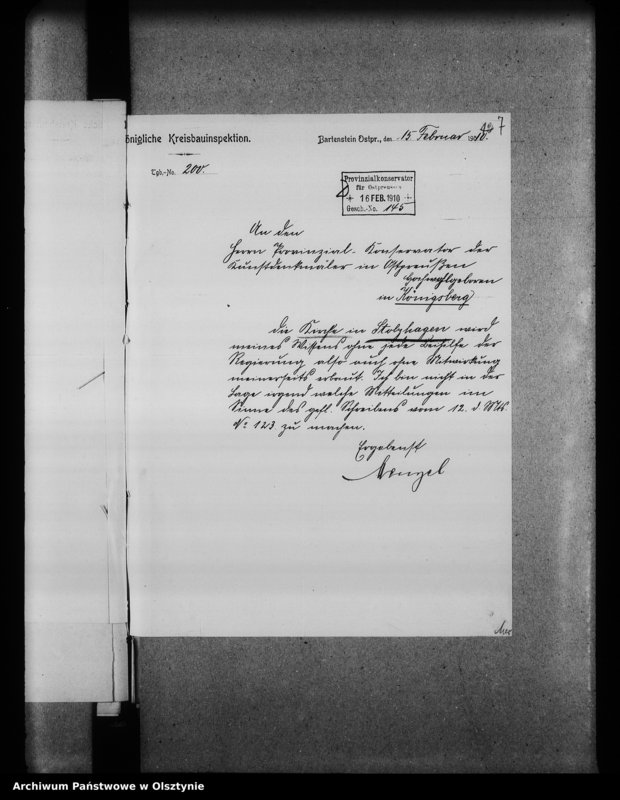 7
Königliche Kreisbauinspektion. Bartenstein Ostpr., den 15 Februar 1910.
Tgb.-No. 200.
Provinzialkonservator
für Ostpreussen
16 FEB. 1910
Gesch.-No. 145
An den
Herrn Provinzial-Konservator der
Kunstdenkmäler in Ostpreußen
Hochwohlgeboren
in Königsberg
Die Kirche in Stolzhagen wird
meines Wissens ohne jede Beihilfe der
Regierung also auch ohne Mitwirkung
meinerseits erbaut. Ich bin nicht in der
Lage irgend welche Mitteilungen im
Sinne des gefl. Schreibens vom 12. d. Mts.
No 123 zu machen.
Ergebenst
Menzel
Archiwum Państwowe w Olsztynie